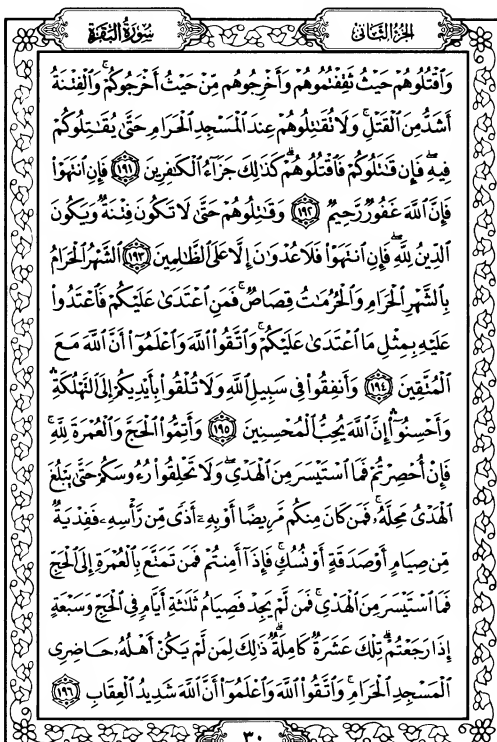 سُورَةُ البَقَرَةِ
الجُزْءُ الثَّانِي
وَٱقْتُلُوهُمْ حَيْثُ ثَقِفْتُمُوهُمْ وَأَخْرِجُوهُم مِّنْ حَيْثُ أَخْرَجُوكُمْ ۚ وَٱلْفِتْنَةُ
أَشَدُّ مِنَ ٱلْقَتْلِ ۚ وَلَا تُقَٰتِلُوهُمْ عِندَ ٱلْمَسْجِدِ ٱلْحَرَامِ حَتَّىٰ يُقَٰتِلُوكُمْ
فِيهِ ۖ فَإِن قَٰتَلُوكُمْ فَٱقْتُلُوهُمْ ۗ كَذَٰلِكَ جَزَآءُ ٱلْكَٰفِرِينَ ١٩١ فَإِنِ ٱنتَهَوْا۟
فَإِنَّ ٱللَّهَ غَفُورٌ رَّحِيمٌ ١٩٢ وَقَٰتِلُوهُمْ حَتَّىٰ لَا تَكُونَ فِتْنَةٌ وَيَكُونَ
ٱلدِّينُ لِلَّهِ ۖ فَإِنِ ٱنتَهَوْا۟ فَلَا عُدْوَٰنَ إِلَّا عَلَى ٱلظَّٰلِمِينَ ١٩٣ ٱلشَّهْرُ ٱلْحَرَامُ
بِٱلشَّهْرِ ٱلْحَرَامِ وَٱلْحُرُمَٰتُ قِصَاصٌ ۚ فَمَنِ ٱعْتَدَىٰ عَلَيْكُمْ فَٱعْتَدُوا۟
عَلَيْهِ بِمِثْلِ مَا ٱعْتَدَىٰ عَلَيْكُمْ ۚ وَٱتَّقُوا۟ ٱللَّهَ وَٱعْلَمُوٓا۟ أَنَّ ٱللَّهَ مَعَ
ٱلْمُتَّقِينَ ١٩٤ وَأَنفِقُوا۟ فِى سَبِيلِ ٱللَّهِ وَلَا تُلْقُوا۟ بِأَيْدِيكُمْ إِلَى ٱلتَّهْلُكَةِ ۛ
وَأَحْسِنُوٓا۟ ۛ إِنَّ ٱللَّهَ يُحِبُّ ٱلْمُحْسِنِينَ ١٩٥ وَأَتِمُّوا۟ ٱلْحَجَّ وَٱلْعُمْرَةَ لِلَّهِ ۚ
فَإِنْ أُحْصِرْتُمْ فَمَا ٱسْتَيْسَرَ مِنَ ٱلْهَدْىِ ۖ وَلَا تَحْلِقُوا۟ رُءُوسَكُمْ حَتَّىٰ يَبْلُغَ
ٱلْهَدْىُ مَحِلَّهُۥ ۚ فَمَن كَانَ مِنكُم مَّرِيضًا أَوْ بِهِۦٓ أَذًى مِّن رَّأْسِهِۦ فَفِدْيَةٌ
مِّن صِيَامٍ أَوْ صَدَقَةٍ أَوْ نُسُكٍ ۚ فَإِذَآ أَمِنتُمْ فَمَن تَمَتَّعَ بِٱلْعُمْرَةِ إِلَى ٱلْحَجِّ
فَمَا ٱسْتَيْسَرَ مِنَ ٱلْهَدْىِ ۚ فَمَن لَّمْ يَجِدْ فَصِيَامُ ثَلَٰثَةِ أَيَّامٍ فِى ٱلْحَجِّ وَسَبْعَةٍ
إِذَا رَجَعْتُمْ ۗ تِلْكَ عَشَرَةٌ كَامِلَةٌ ۗ ذَٰلِكَ لِمَن لَّمْ يَكُنْ أَهْلُهُۥ حَاضِرِى
ٱلْمَسْجِدِ ٱلْحَرَامِ ۚ وَٱتَّقُوا۟ ٱللَّهَ وَٱعْلَمُوٓا۟ أَنَّ ٱللَّهَ شَدِيدُ ٱلْعِقَابِ ١٩٦
٣٠